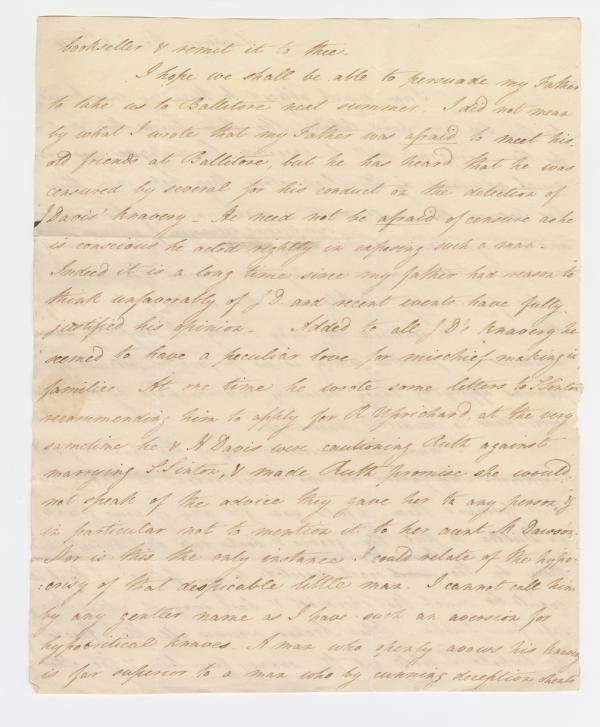 bookseller & remit it to thee.
I hope we shall be able to persuade my Father
to take us to Ballitore next summer. I did not mean
by what I wrote that my Father was afraid to meet his
old friends at Ballitore, but he has heard that he was
censured by several for his conduct on the detection of
J Davis' knavery. He need not be afraid of censure as he
is conscious he acted rightly in exposing such a man.
Indeed it is a long time since my father had reason to
think unfavorably of J D. and recent events have fully
justified his opinion. Added to all J D's knavery he
seemed to have a peculiar love for mischief-making in
families. At one time he wrote some letters to S Sinton
recommending him to apply for R Uprichard, at the very
sametime he & H Davis were cautioning Ruth against
marrying S. Sinton, & made Ruth promise she would
not speak of the advice they gave her to any person, &
in particular not to mention it to her aunt M. Dawson.
Nor is this the only instance I could relate of the hypo-
:crisy of that despicable little man. I cannot call him
by any gentler name as I have such an aversion for
hypocritical knaves. A man who openly avows his knavery
is far superior to a man who by cunning deception cheats